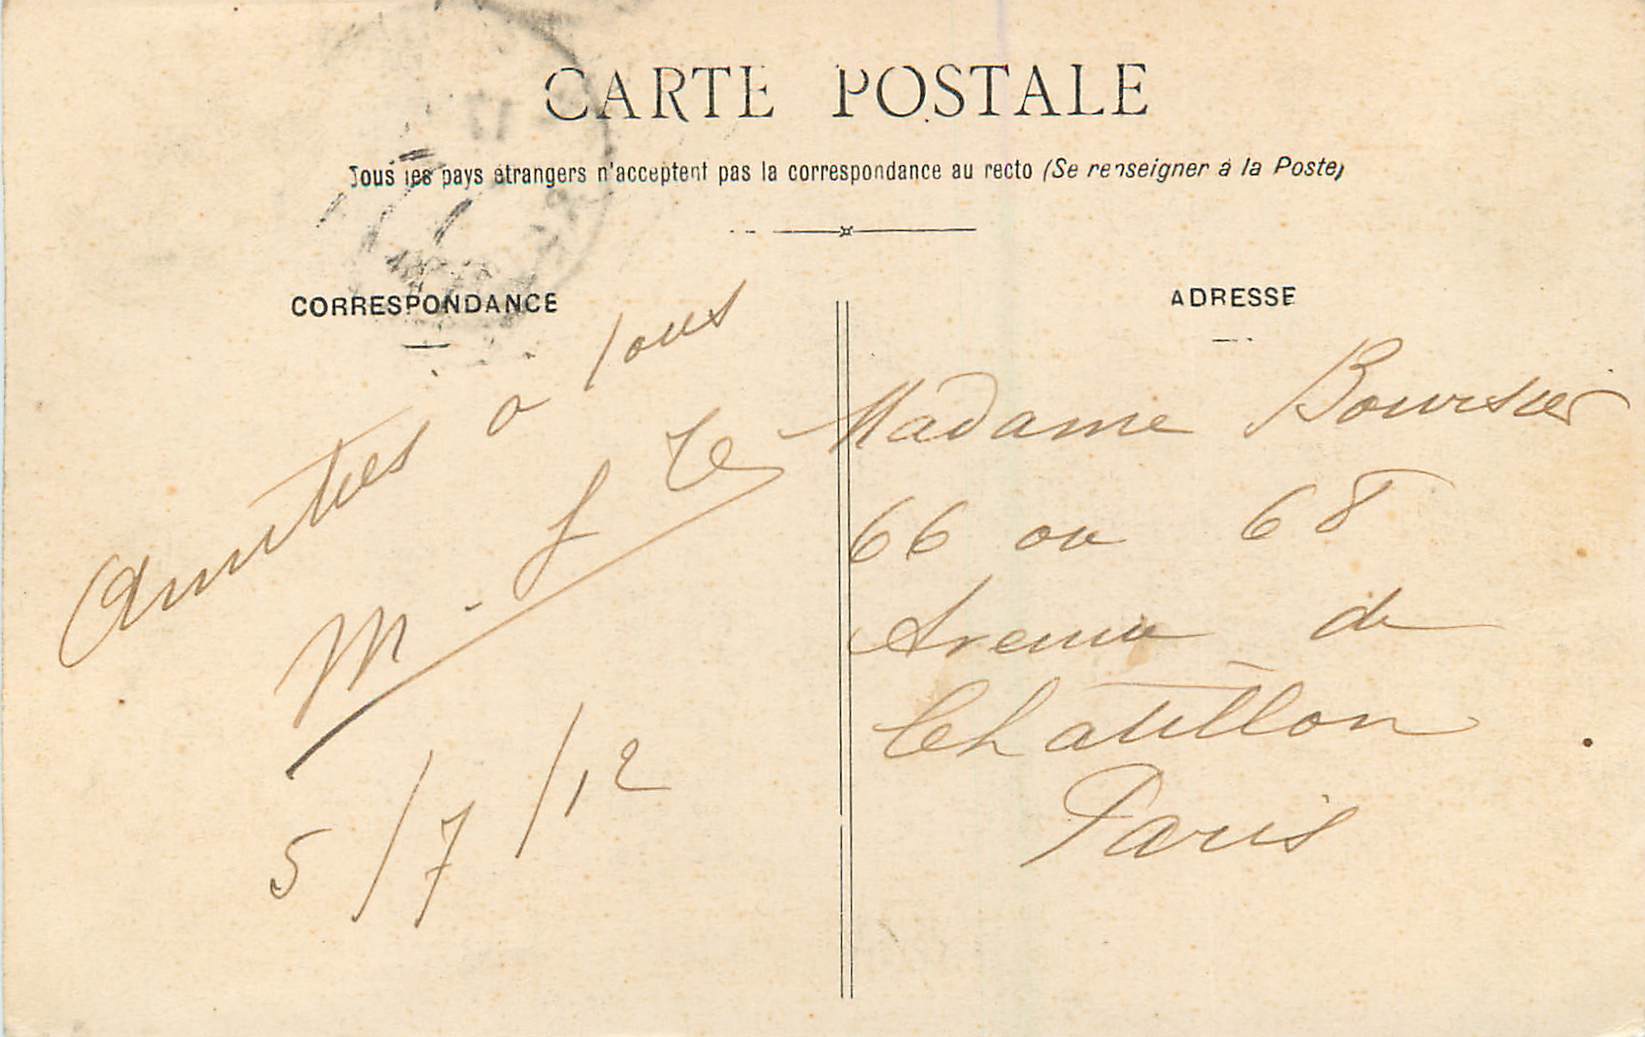 CARTE POSTALE
Tous les pays étrangers n'acceptent pas la correspondance au recto (Se renseigner à la Poste)
CORRESPONDANCE
Amitiés à tous
5/7/12
ADRESSE
Madame Boursier
66 ou 68
Avenue de
Chatillon
Paris